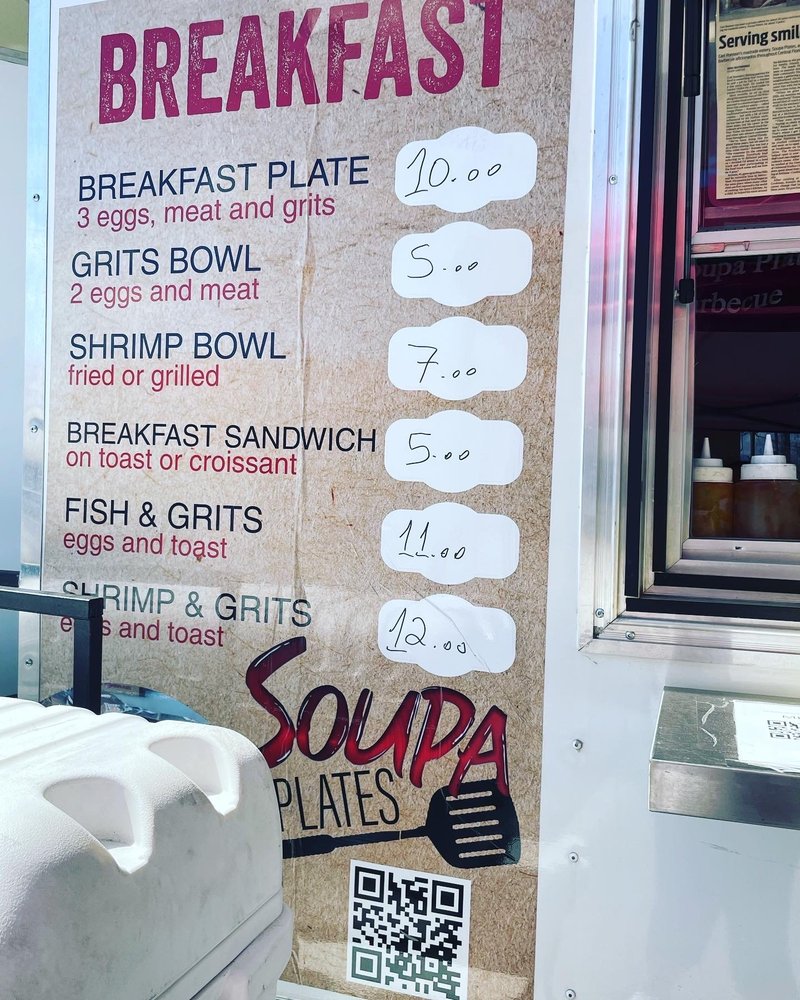 BREAKFAST
BREAKFAST PLATE 10.00
3 eggs, meat and grits
GRITS BOWL 5.00
2 eggs and meat
SHRIMP BOWL 7.00
fried or grilled
BREAKFAST SANDWICH 5.00
on toast or croissant
FISH & GRITS 11.00
eggs and toast
SHRIMP & GRITS 12.00
eggs and toast
SOUPA
PLATES
Serving smil
oupa Pla
rbecue